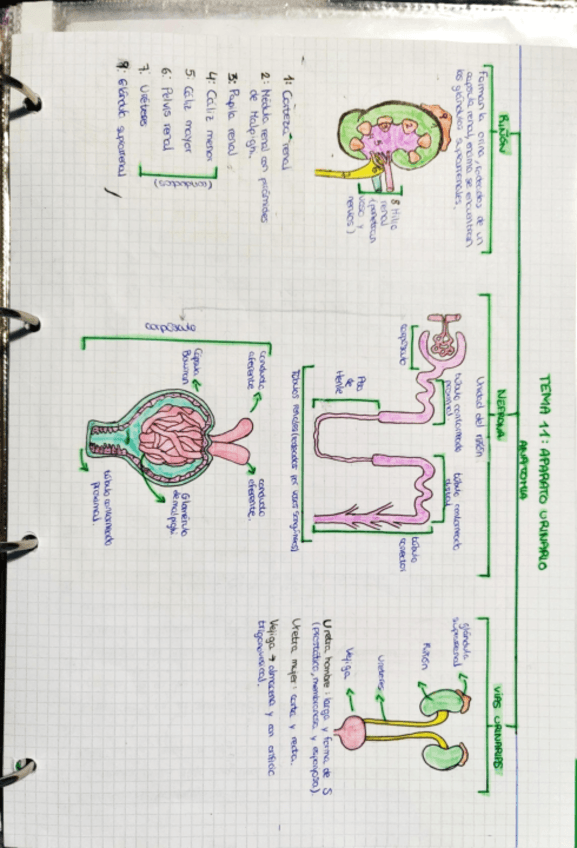 TEMA 11: APARATO URINARIO
ANATOMIA
RIÑÓN
Forman la orina, rodeados de un
capsula renal, encima se encuentran
las glándulas suprarrenales.
9
2
5
6
8 Hilio
renal
(penetran
vaso y
nervios)
1: Corteza renal
2: Médula renal con pirámides
de Malpighi.
3: Papila renal
4: Cáliz menor
5: Cáliz mayor
6: Pelvis renal
(conductos)
7: Uréteres
9: Glándula suprarrenal
NEFRONA
Unidad del riñón
túbulo contorneado
proximal
túbulo contorneado
distal
corpúsculo
Asa
de
Henle
túbulo
colector
Túbulos renales (rodeados por vasos sanguíneos)
corpúsculo
conducto
aferente
conducto
eferente.
Cápsula
Bowman
Glomérulo
de malpighi
túbulo contorneado
proximal
VÍAS URINARIAS
glándula
suprarrenal
Riñón
Uréteres
Vejiga
Uretra hombre: larga y forma de S
(prostática, membranosa y esponjosa).
Uretra mujer: corta y recta.
Vejiga → almacena y con orificio